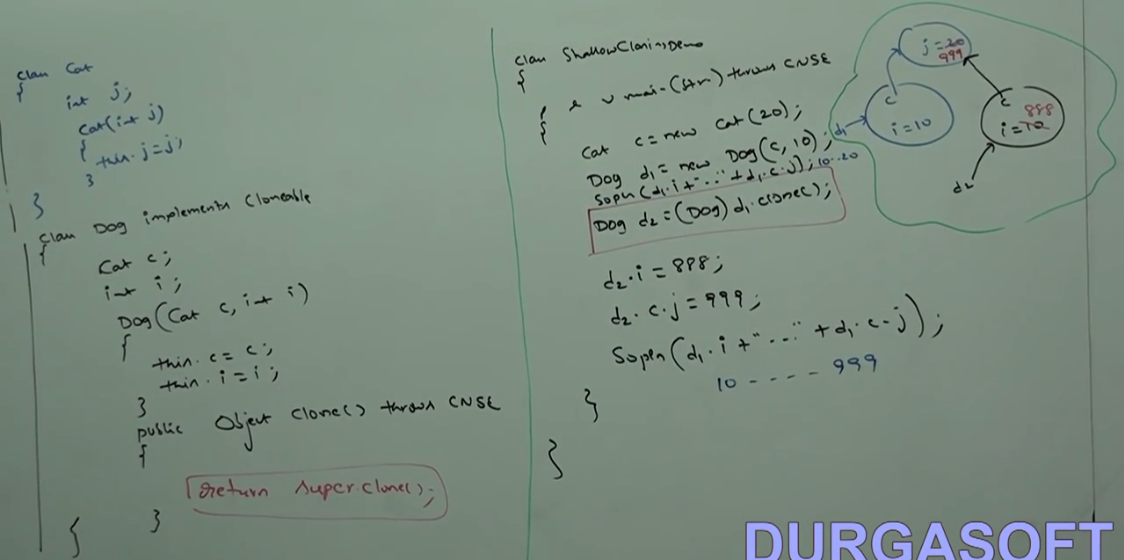 class Cat
{
int j;
Cat(int j)
{
this.j=j;
}
}
class Dog implements Cloneable
{
Cat c;
int i;
Dog(Cat c, int i)
{
this.c = c;
this.i = i;
}
public Object clone() throws CNSE
{
return super.clone();
}
}
class ShallowCloningDemo
{
p s v main(String) throws CNSE
{
Cat c = new Cat(20);
Dog d1 = new Dog(c, 10);
Sopln(d1.i + "..." + d1.c.j); 10...20
Dog d2 = (Dog) d1.clone();
d2.i = 888;
d2.c.j = 999;
Sopln(d1.i + "..." + d1.c.j);
10 - - - - 999
}
}
j = 20
999
c
i = 10
d1
c
888
i = 10
d2
DURGASOFT